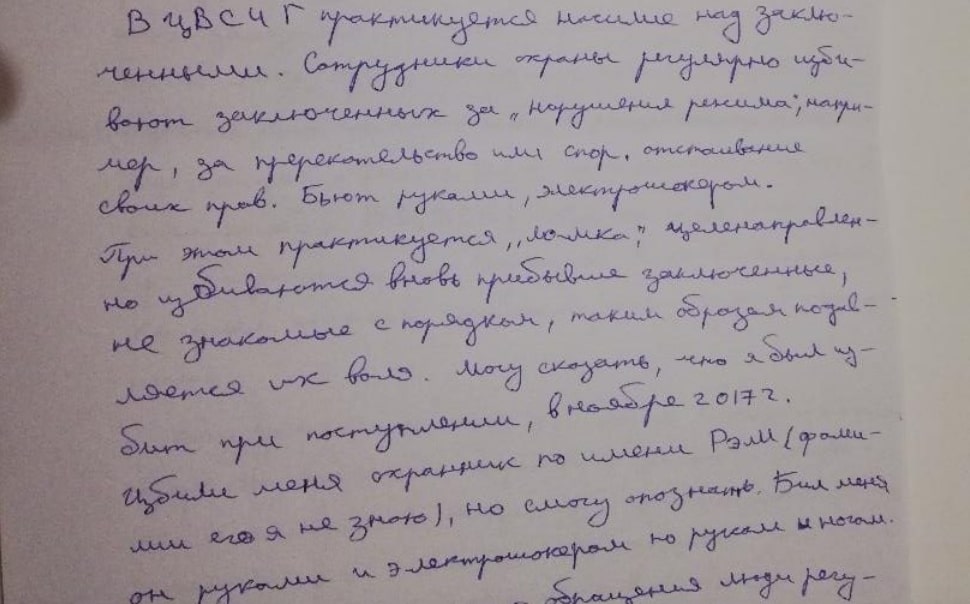 В ЦВСИГ практикуется насилие над заклю-
ченными. Сотрудники охраны регулярно изби-
вают заключенных за „нарушения режима”, напри-
мер, за пререкательство или спор, отстаивание
своих прав. Бьют руками, электрошокером.
При этом практикуется „ломка”, целенаправлен-
но избиваются вновь прибывшие заключенные,
не знакомые с порядком, таким образом подав-
ляется их воля. Могу сказать, что я был из-
бит при поступлении, в ноябре 2017 г.
Избили меня охранник по имени Рэм (фами-
лии его я не знаю), но смогу опознать. Бил меня
он руками и электрошокером по рукам и ногам.
обращения люди регу-